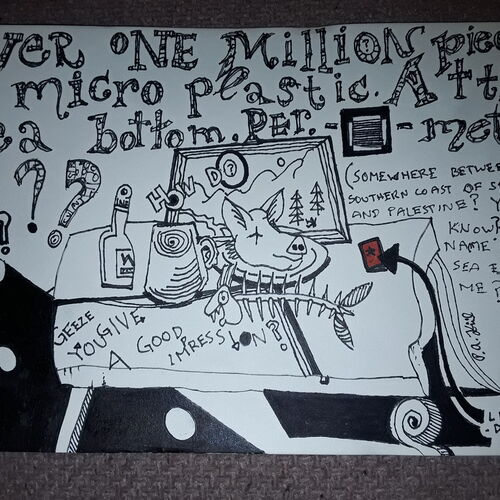 VER oNE MillioN piec
micro plastic. Att
ea bottom. PER. - - met
HOW DO
(SOMEWHERE BETWEE
SOUTHERN COAST OF S
AND PALESTINE? Y
KNOW
NAME
SEA E
ME
GEEZE
YOU GIVE
A GOOD
IMPRESSION?